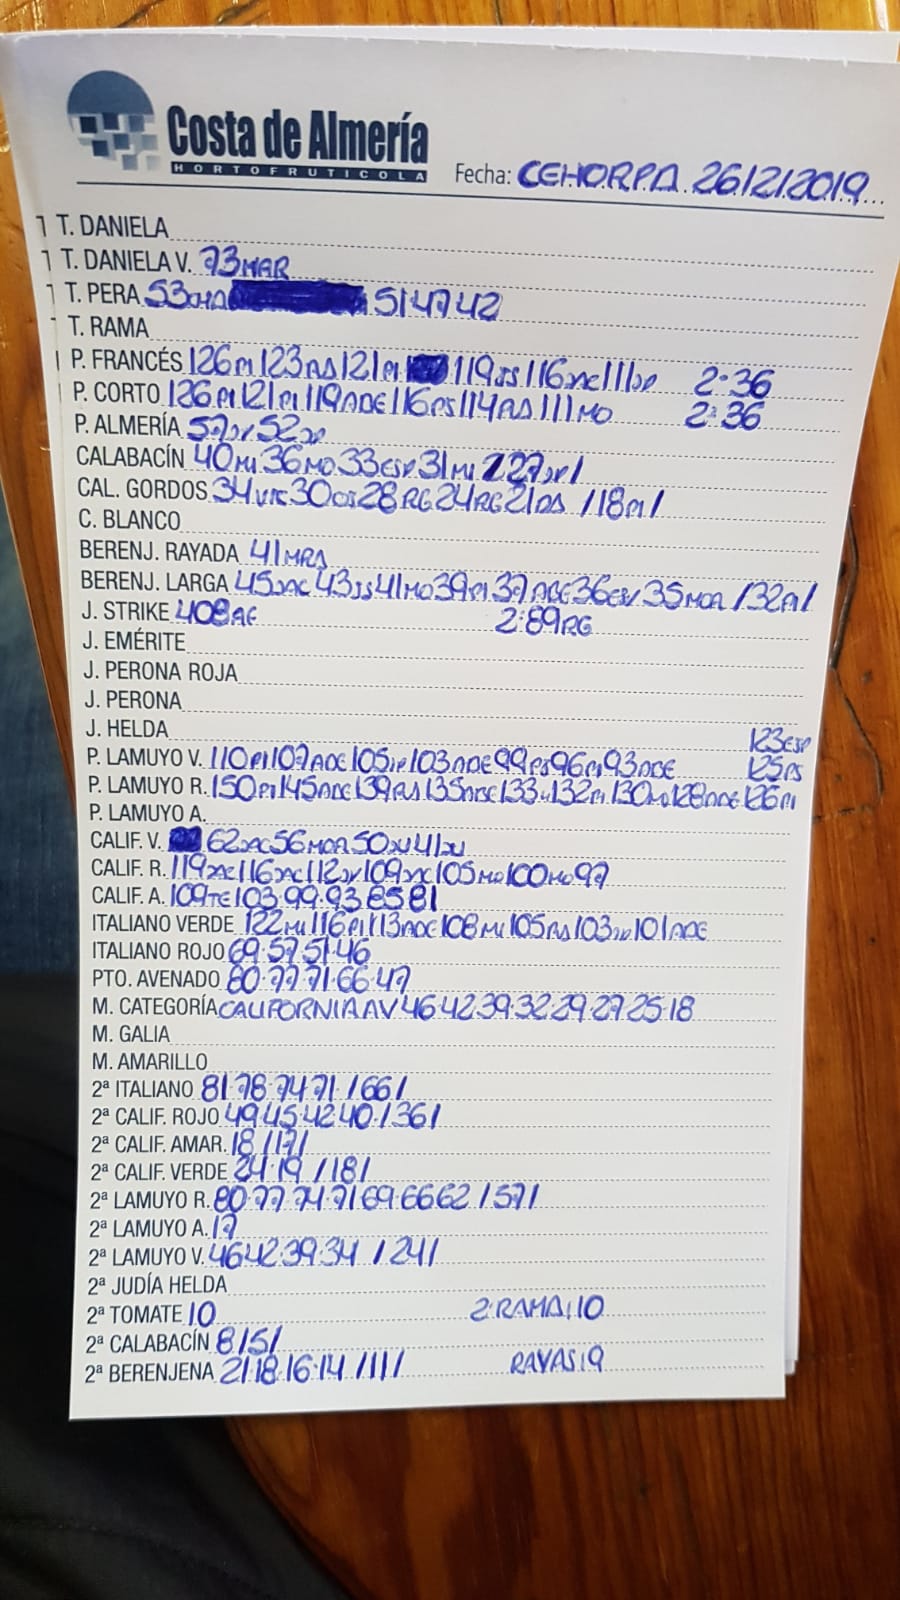 Costa de Almería
HORTOFRUTICOLA
Fecha: CEHORPA 26/12/2019
T. DANIELA
T. DANIELA V. 73MAR
T. PERA 53 51 47 42
T. RAMA
P. FRANCÉS 126PI 123RS 121PI 119JS 116JAC 111 2ª36
P. CORTO 126PI 121PI 119ADE 116PS 114RS 111MO 2ª36
P. ALMERÍA 57 52
CALABACÍN 40MI 36MO 33ESP 31MI 27 /
CAL. GORDOS 34 30 28RG 24RG 21 /18PI/
C. BLANCO
BERENJ. RAYADA 41MRA
BERENJ. LARGA 45JAC 43JS 41MO 39PI 37ADE 36 35MOR /32PI/
J. STRIKE 408AE 2:89RG
J. EMÉRITE
J. PERONA ROJA
J. PERONA
J. HELDA 123ESP
P. LAMUYO V. 110PI 107ADE 105 103ADE 99PS 96PI 93ADE 125PS
P. LAMUYO R. 150PI 145ADE 139RS 135ADE 133 132PI 130MO 128ADE 126PI
P. LAMUYO A.
CALIF. V. 62JAC 56MOR 50 41
CALIF. R. 119JAC 116JAC 112 109JAC 105MO 100MO 97
CALIF. A. 109TE 103 99 93 85 81
ITALIANO VERDE 122MI 116PI 113ADE 108MI 105RS 103 101ADE
ITALIANO ROJO 69 57 51 46
PTO. AVENADO 80 77 71 66 47
M. CATEGORÍA CALIFORNIA AV 46 42 39 32 29 27 25 18
M. GALIA
M. AMARILLO
2ª ITALIANO 81 78 74 71 /66/
2ª CALIF. ROJO 49 45 42 40 /36/
2ª CALIF. AMAR. 18 /17/
2ª CALIF. VERDE 24 19 /18/
2ª LAMUYO R. 80 77 74 71 69 66 62 /57/
2ª LAMUYO A. 17
2ª LAMUYO V. 46 42 39 34 /24/
2ª JUDÍA HELDA
2ª TOMATE 10 2:RAMA:10
2ª CALABACÍN 8/5/
2ª BERENJENA 21 18 16 14 /11/ RAYAS:9